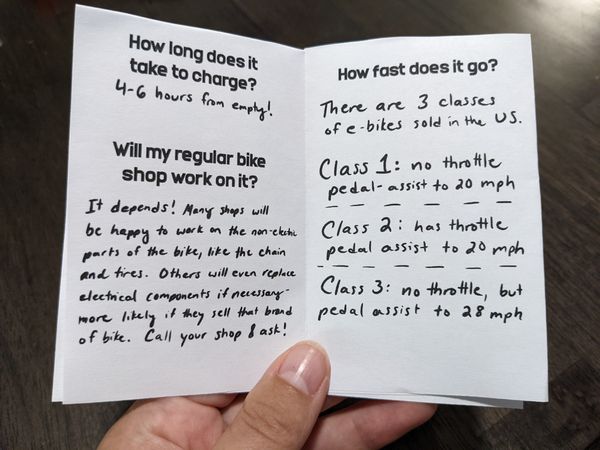 How long does it
take to charge?
4-6 hours from empty!
Will my regular bike
shop work on it?
It depends! Many shops will
be happy to work on the non-electric
parts of the bike, like the chain
and tires. Others will even replace
electrical components if necessary-
more likely if they sell that brand
of bike. Call your shop & ask!
How fast does it go?
There are 3 classes
of e-bikes sold in the US.
Class 1: no throttle
pedal-assist to 20 mph
Class 2: has throttle
pedal assist to 20 mph
Class 3: no throttle, but
pedal assist to 28 mph